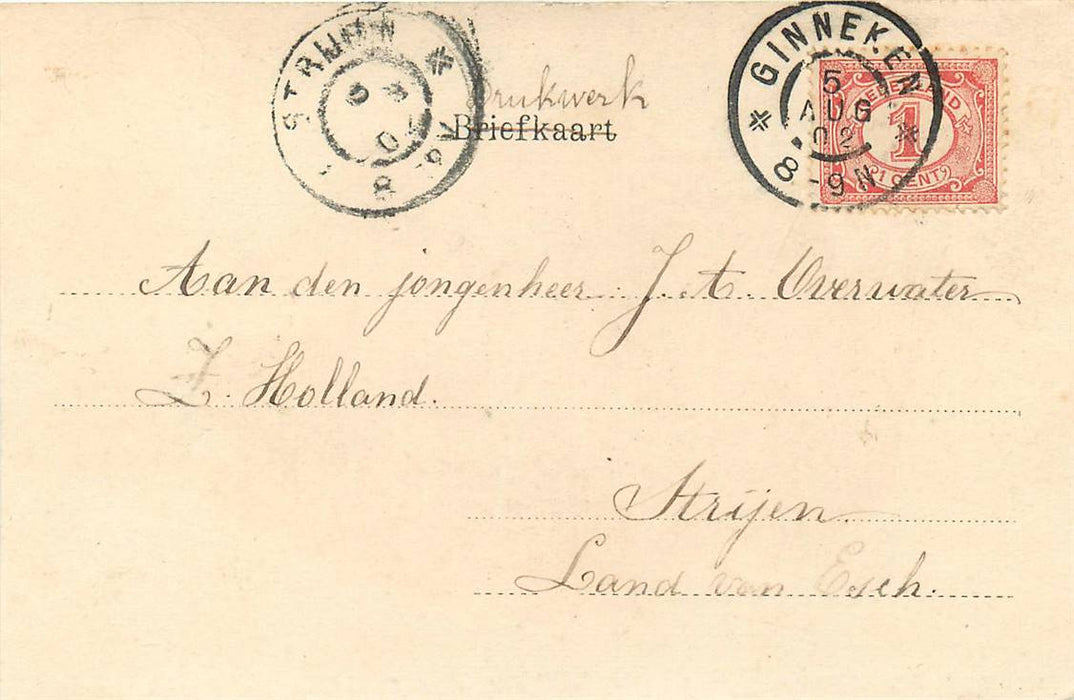 STRIJEN
8
Drukwerk
Briefkaart
GINNEKEN
5
AUG
02
8-9N
NEDERLAND
1
1 CENT
Aan den jongenheer J. A. Overwater
Z. Holland.
Strijen
Land van Esch.